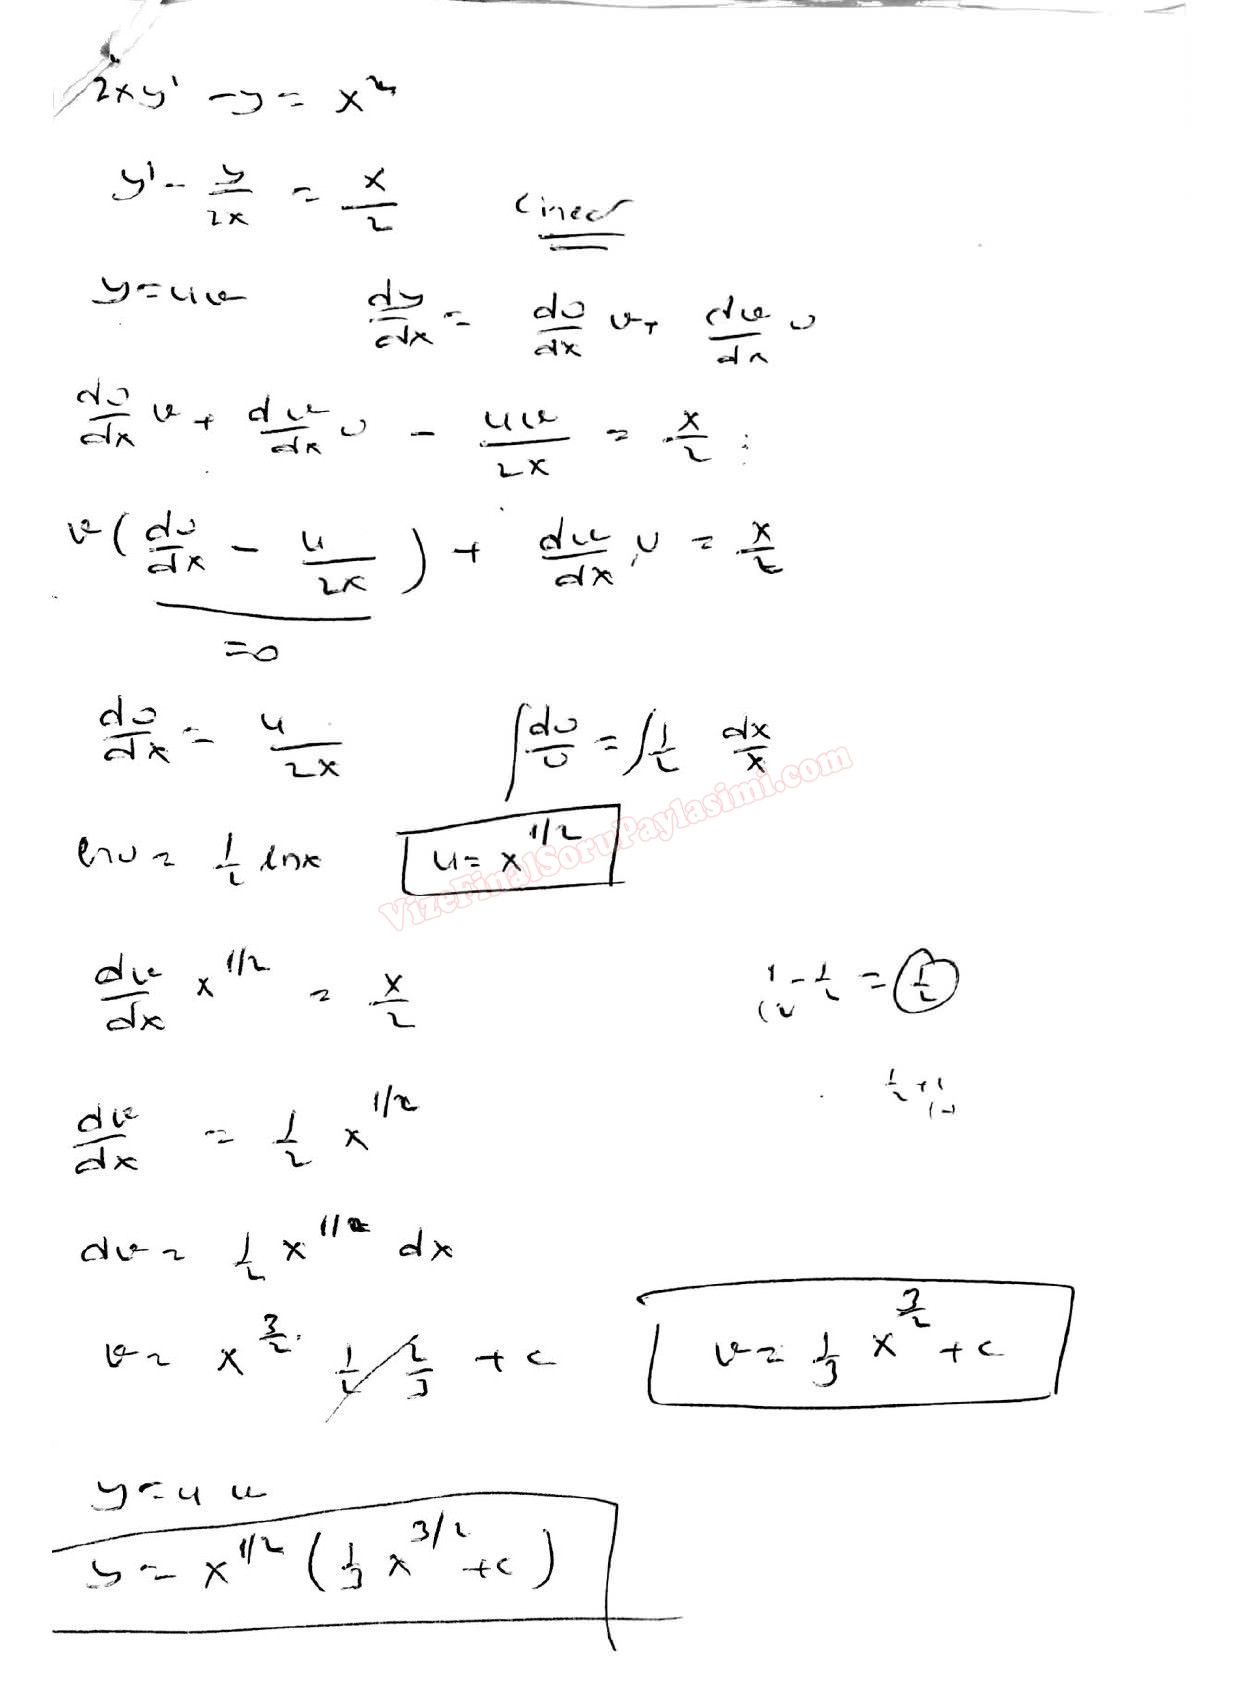 2xy' - y = x²
y' - y/2x = x/2 Lineer
y = uv dy/dx = du/dx v + dv/dx u
du/dx v + dv/dx u - uv/2x = x/2
v ( du/dx - u/2x ) + dv/dx u = x/2
= 0
du/dx = u/2x ∫ du/u = ∫ 1/2 dx/x
lnu = 1/2 lnx u = x^1/2
VizeFinalSoruPaylasimi.com
dv/dx x^1/2 = x/2 1 - 1/2 = 1/2
1/2 + 1
dv/dx = 1/2 x^1/2
dv = 1/2 x^1/2 dx
v = x^3/2 1/2 2/3 + c v = 1/3 x^3/2 + c
y = u v
y = x^1/2 ( 1/3 x^3/2 + c )